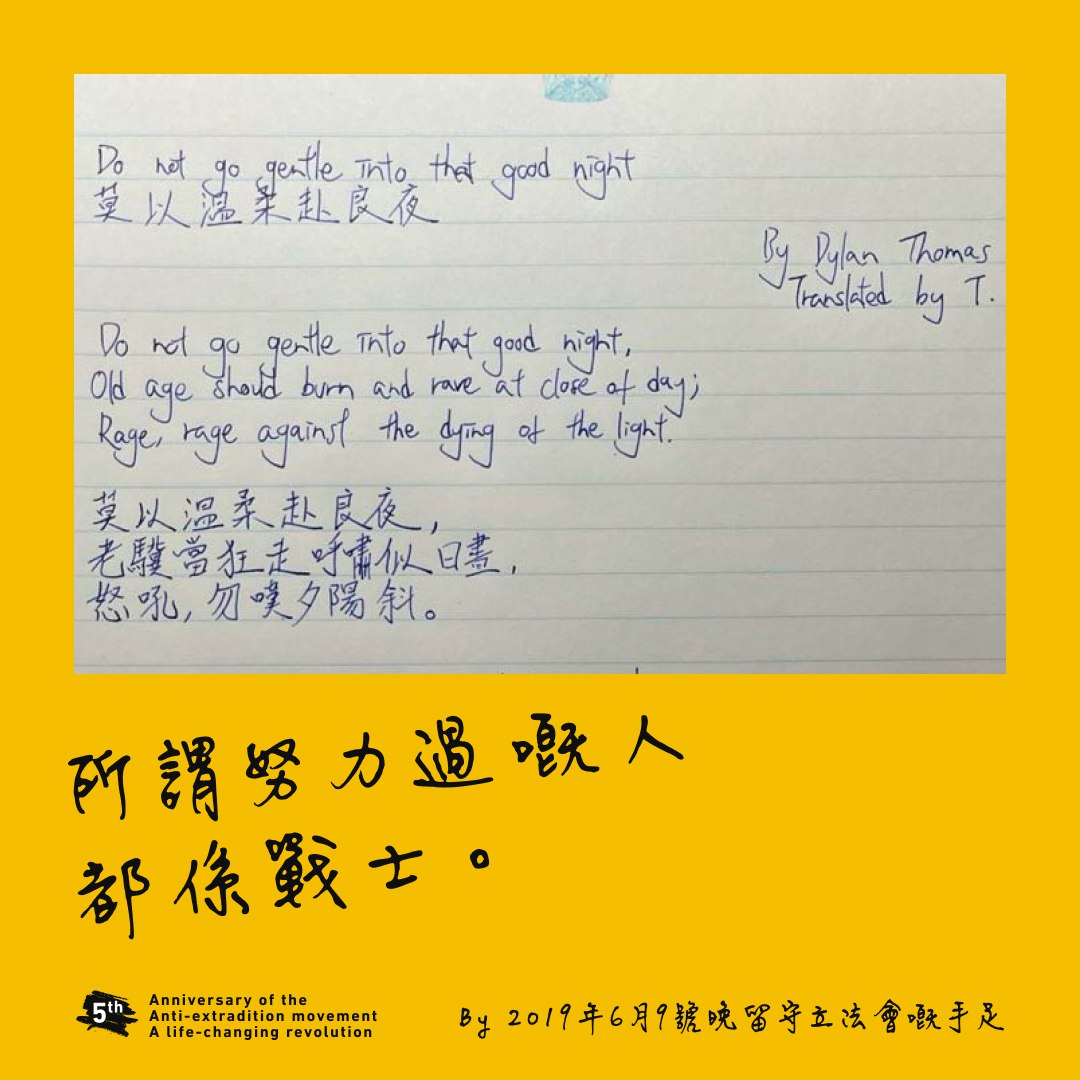 Do not go gentle into that good night
莫以溫柔赴良夜
By Dylan Thomas
Translated by T.
Do not go gentle into that good night,
Old age should burn and rave at close of day;
Rage, rage against the dying of the light.
莫以溫柔赴良夜,
老驥當狂走呼嘯似日晝,
怒吼,勿嘆夕陽斜。
所謂努力過嘅人
都係戰士。
5th
Anniversary of the
Anti-extradition movement
A life-changing revolution
By 2019年6月9號晚留守立法會嘅手足